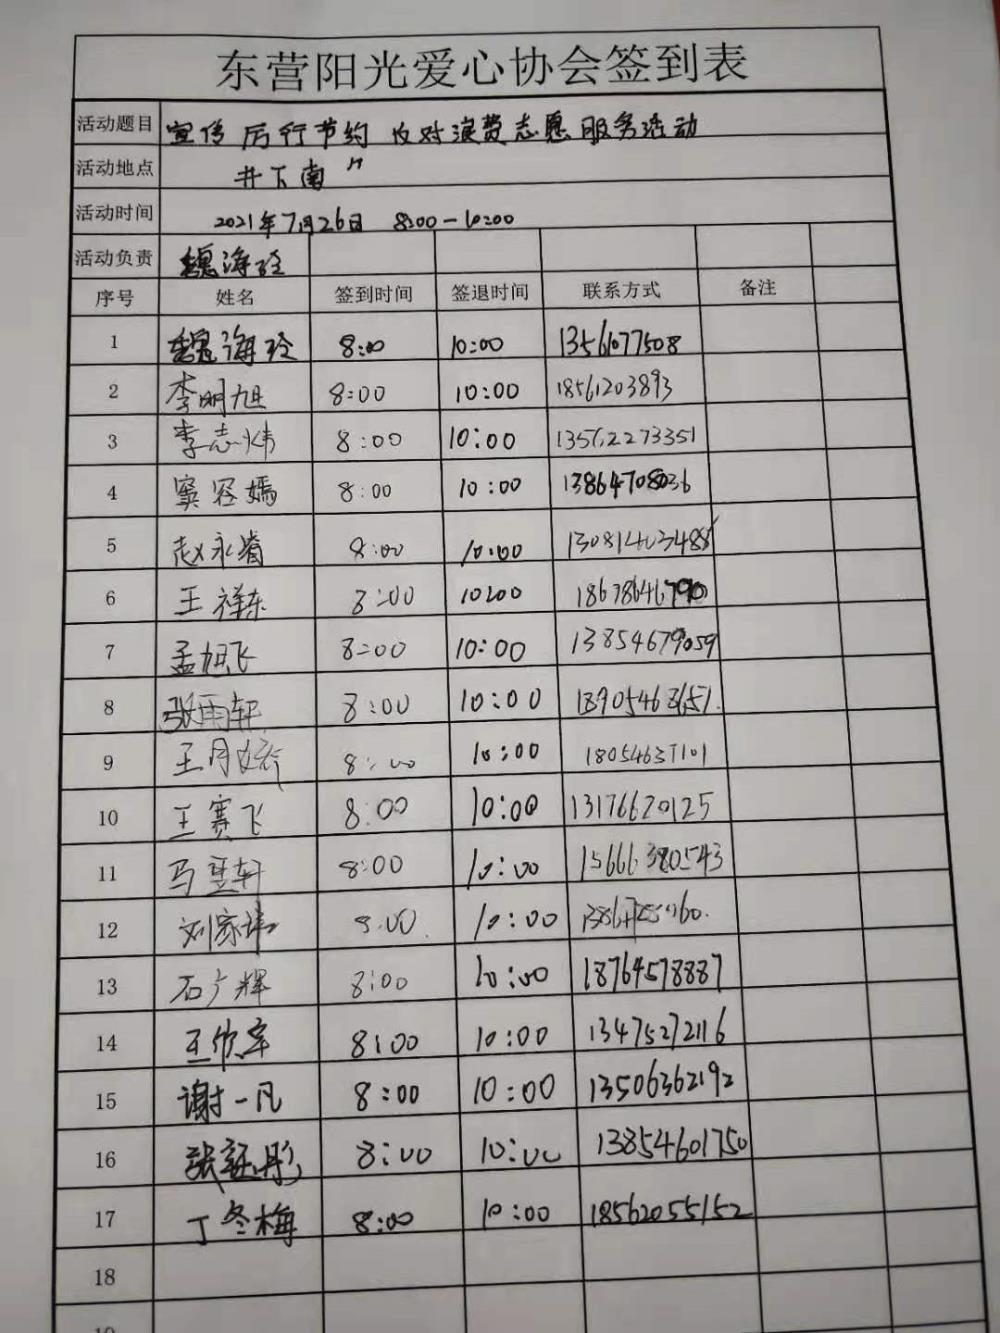 东营阳光爱心协会签到表
活动题目 宣传 厉行节约 反对浪费志愿服务活动
活动地点 井下南
活动时间 2021年7月26日 8:00-10:00
活动负责 魏海玲
序号 姓名 签到时间 签退时间 联系方式 备注
1 魏海玲 8:00 10:00 13561077508
2 李明旭 8:00 10:00 18561203893
3 李志炜 8:00 10:00 13562273351
4 窦容嫣 8:00 10:00
5 赵永睿 8:00 10:00
6 王祥东 8:00 10:00
7 孟旭飞 8:00 10:00 13854679059
8 张雨轩 8:00 10:00 18905468651
9 8:00 10:00 18054637101
10 王赛飞 8:00 10:00 13176620125
11 8:00 10:00 15666380543
12 8:00 10:00
13 石广辉 8:00 10:00 18764578887
14 王欣宇 8:00 10:00 13475272116
15 谢一凡 8:00 10:00 13506362192
16 8:00 10:00 13854601750
17 丁冬梅 8:00 10:00 18562055152
18
19